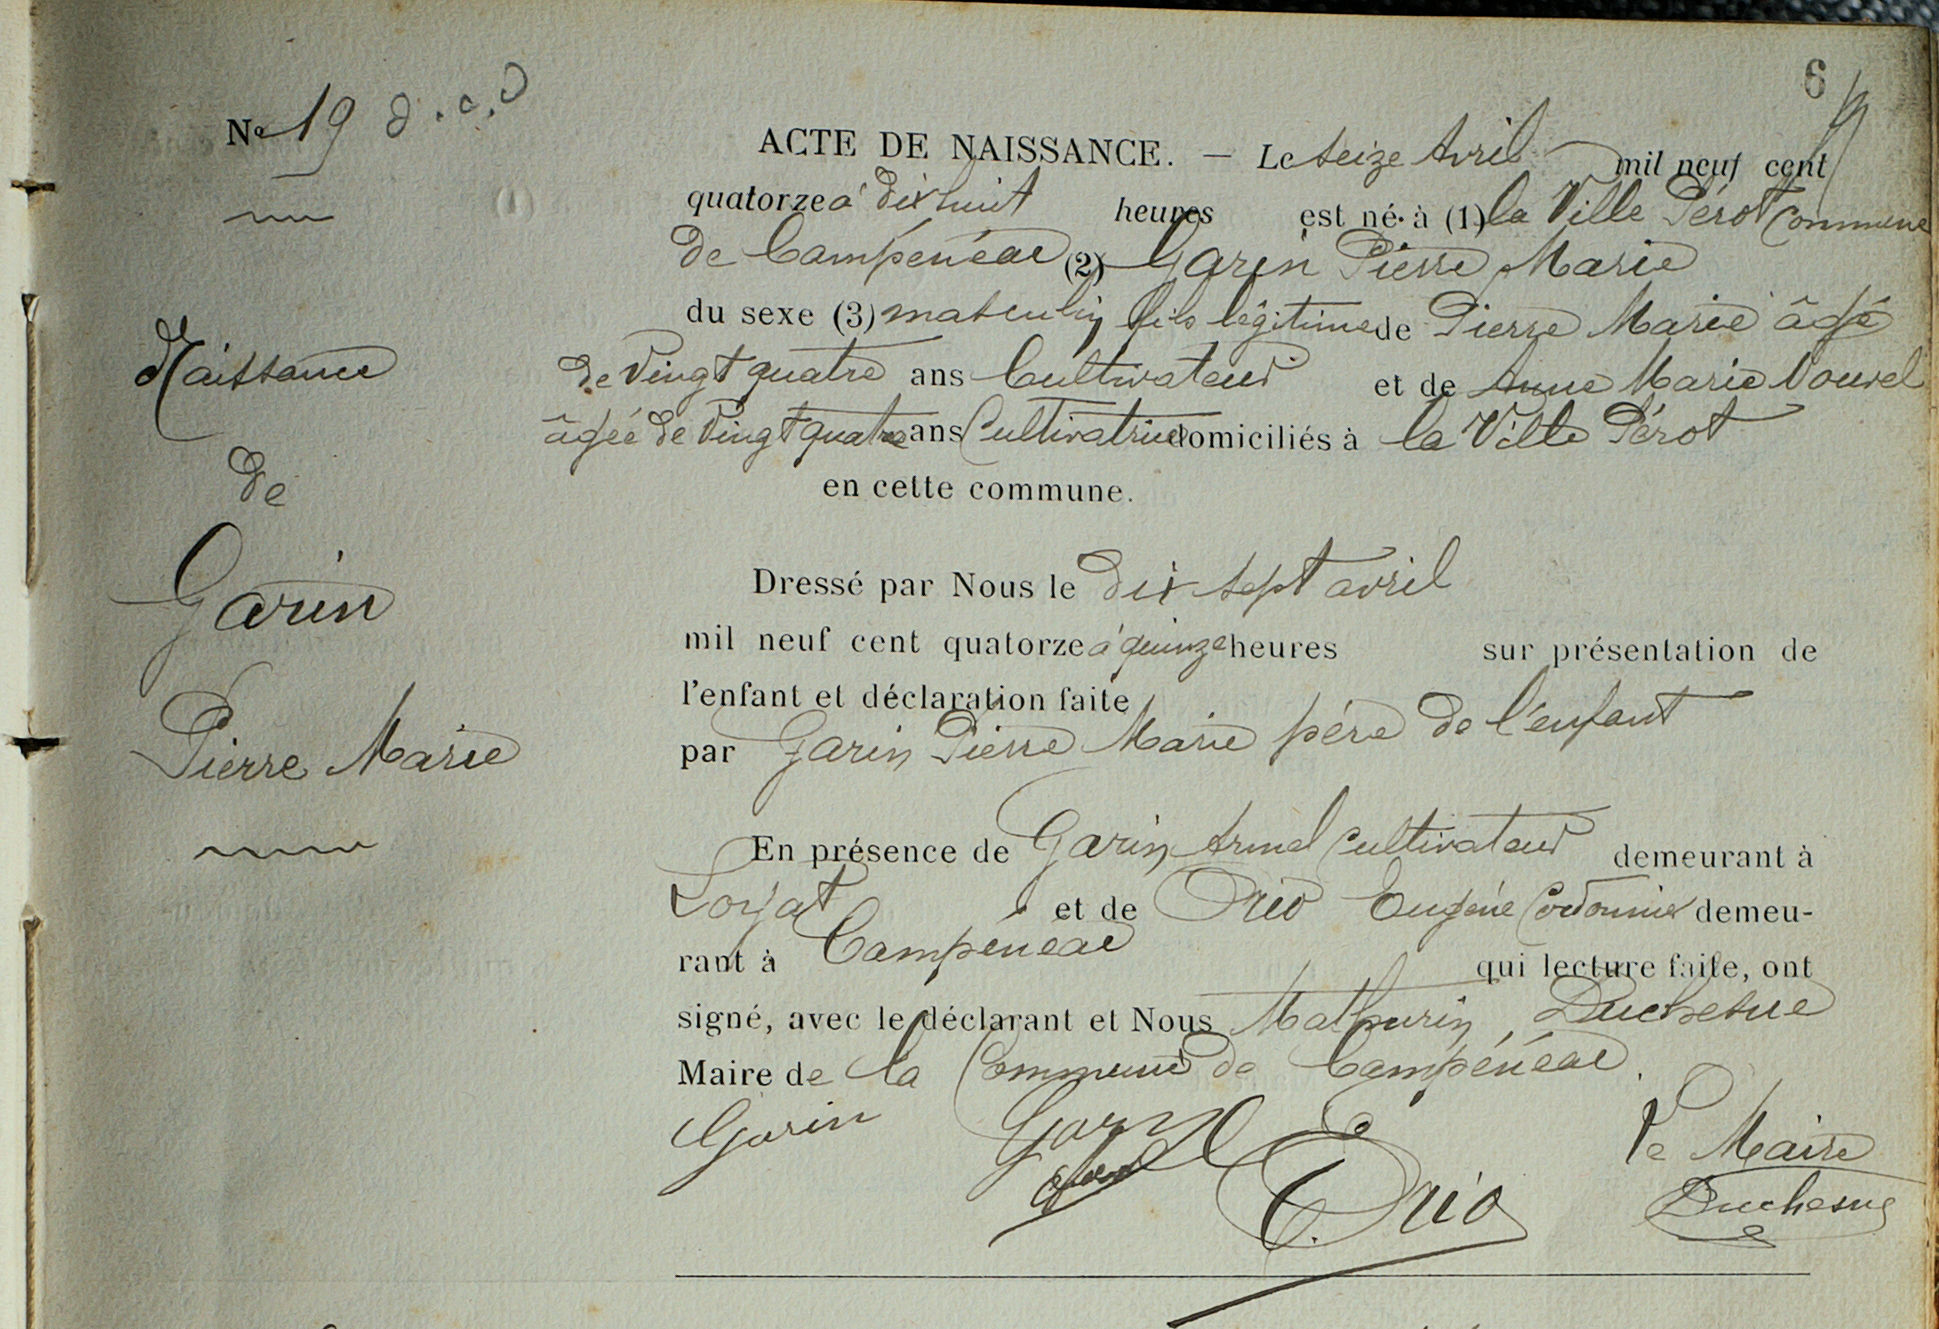 6
No 19
ACTE DE NAISSANCE. — Le seize Avril mil neuf cent
quatorze à dix huit heures est né à (1) la Ville Pérot Commune
de Campénéac (2) Garin Pierre Marie
du sexe (3) masculin fils légitime de Pierre Marie âgé
de Vingt quatre ans Cultivateur et de Anne Marie Nouvel
âgée de Vingt quatre ans Cultivatrice domiciliés à la Ville Pérot
en cette commune.
Naissance
de
Garin
Pierre Marie
Dressé par Nous le dix sept avril
mil neuf cent quatorze à quinze heures sur présentation de
l'enfant et déclaration faite
par Garin Pierre Marie père de l'enfant
En présence de Garin Armel Cultivateur demeurant à
Loyat et de Orio Eugène Cordonnier demeu-
rant à Campénéac qui lecture faite, ont
signé, avec le déclarant et Nous Mathurin Duchesne
Maire de la Commune de Campénéac.
Garin Garin E. Orio Le Maire
Duchesne